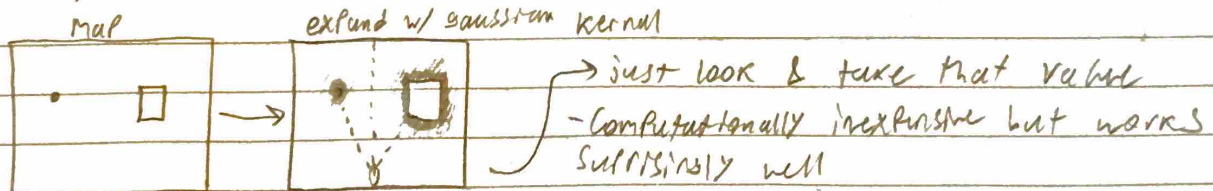 Map
expand w/ gaussian kernel
just look & take that value
- Computationally inexpensive but works
surprisingly well